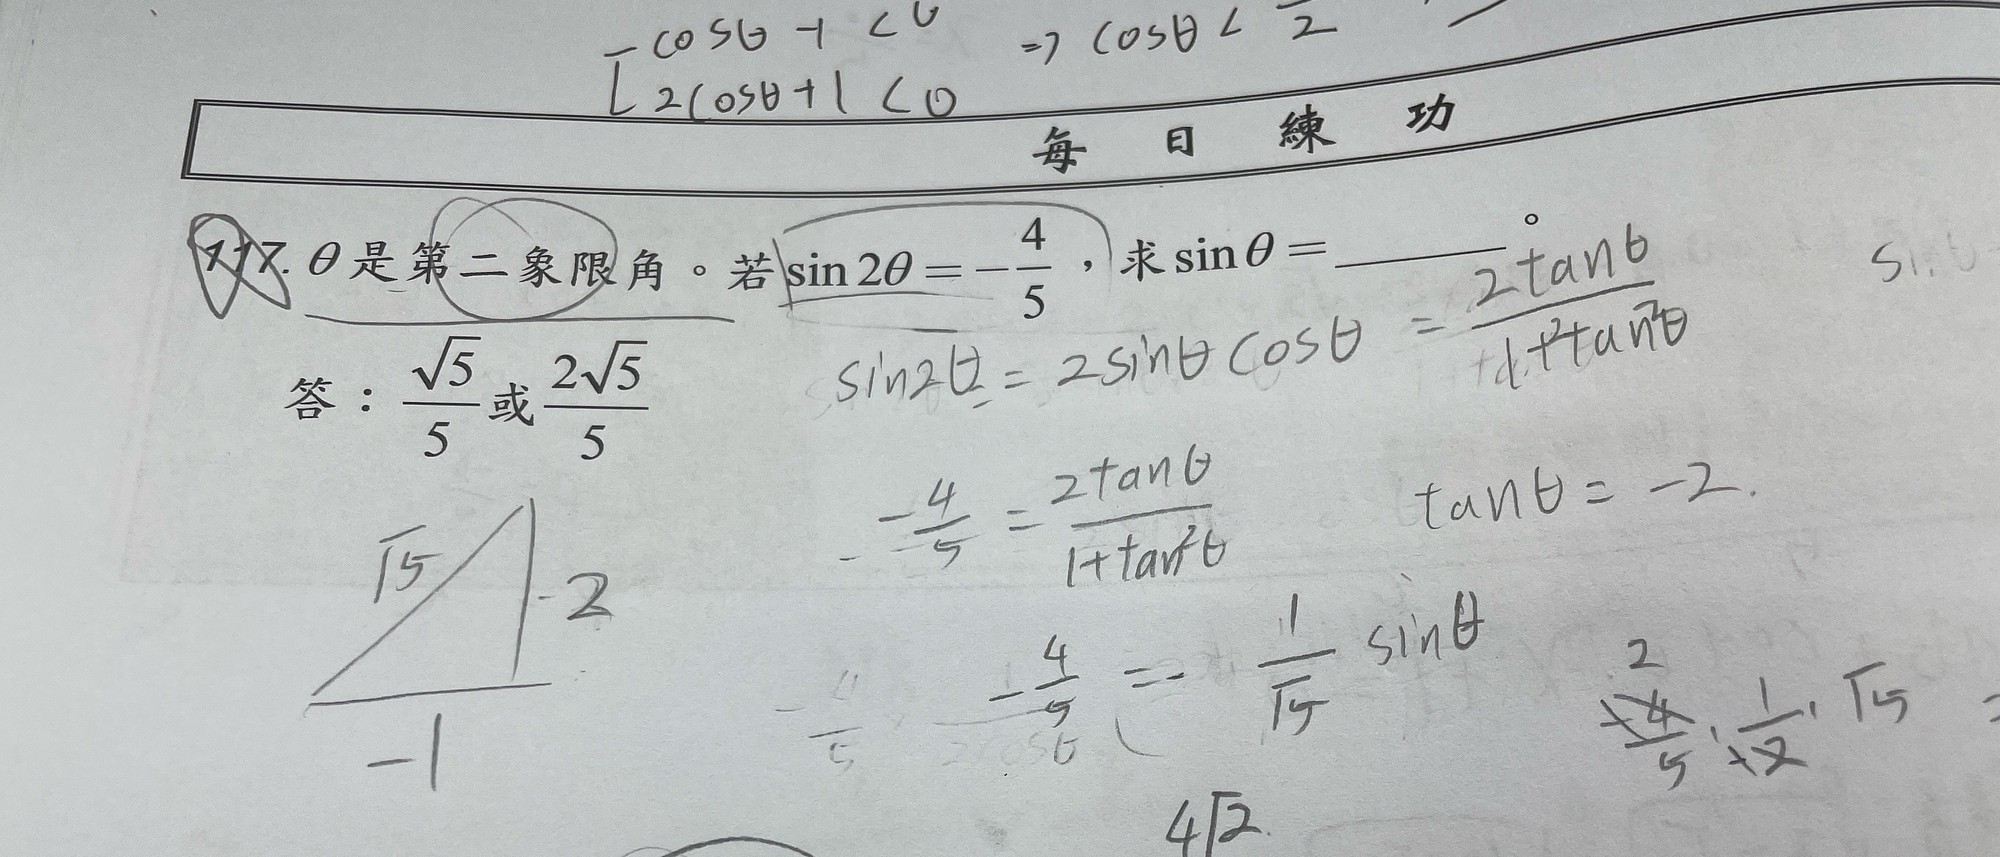 -cosθ-1<0
2cosθ+1<0 => cosθ< /2
每日練功
117. θ是第二象限角。若sin2θ=-4/5，求sinθ=______。
答：√5/5或2√5/5
sin2θ=2sinθcosθ=2tanθ/1+tan²θ
-4/5=2tanθ/1+tan²θ
tanθ=-2.
√5
-2
-1
-4/5=-1/√5 sinθ
2
-4/5·1/-2·√5 =
4√2